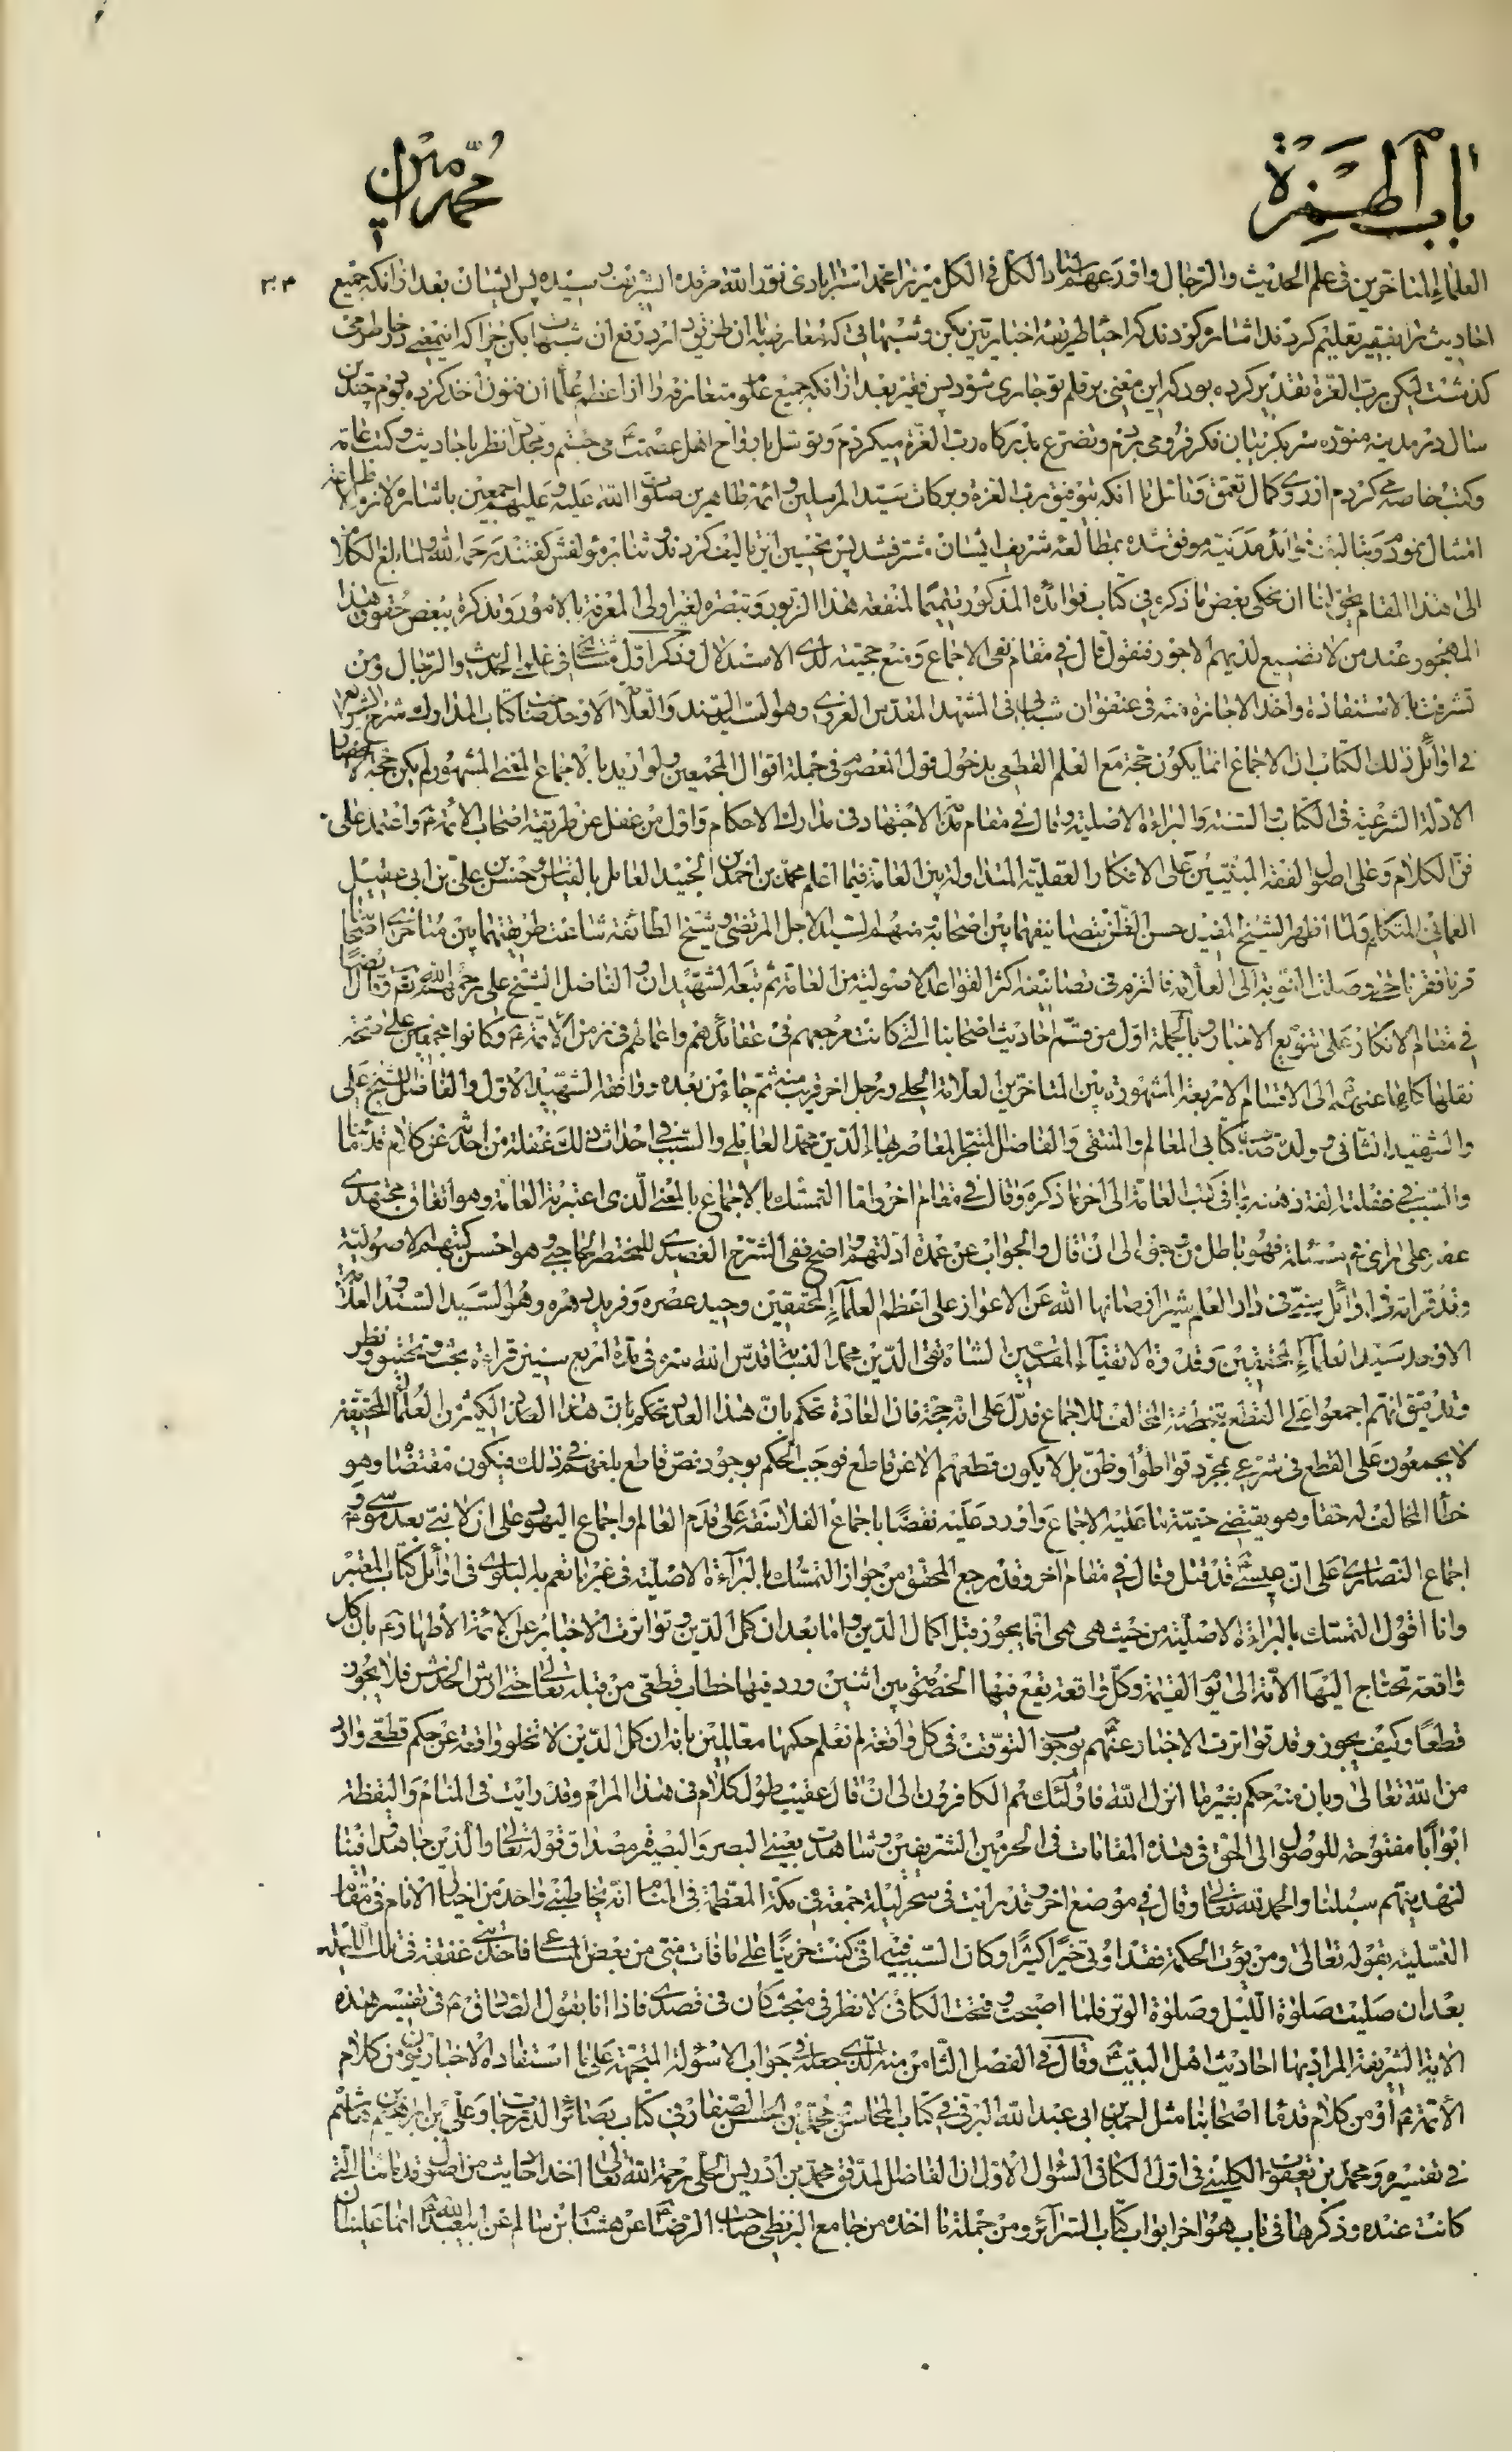 باب الهمزة
محمد امین
۳۰۴
العلماء المتاخرین فی علم الحدیث والرجال واورعهم استاد الکل فی الکل میرزا محمد استرابادی نور الله مرقده الشریف رسیده پس ایشان بعد از انکه جمیع
احادیث را بفقیر تعلیم کردند اشاره کردند که احیاء طریقه اخباریین بکن وشبهاتی که معارضه بان طریق دارد رفع ان شبهات بکن چرا که اینمعنی در خاطر می
کذشت لیکن رب العزة تقدیر کرده بود که این معنی بر قلم تو جاری شود پس فقیر بعد از انکه جمیع علوم متعارفه را از اعظم علماء ان فنون اخذ کرده بودم چندین
سال در مدینه منوره سر بکریبان فکر فرو می بردم وتضرع بدرکاه رب العزة میکردم وتوسل بارواح اهل عصمت ع می جستم ومجددا نظر باحادیث وکتب عامه
وکتب خاصه می کردم از روی کمال تعمق وتامل تا انکه بتوفیق رب العزة وبرکات سید المرسلین وائمه طاهرین صلوات الله علیه وعلیهم اجمعین باشاره لازم الاطاعه
امتثال نمودم وبتالیف فوائد مدنیه موفق شده بمطالعه شریف ایشان مشرف شد پس تحسین این تالیف کردند وثنا بر مؤلفش کفتند رحمه الله ولما بلغ الکلام
الی هذا المقام یحق لنا ان نحکی بعض ما ذکره فی کتاب فوائده المذکور تتمیما لمنفعه هذا الزبور وتبصره لغیر اولی المعرفة بالامور وتذکرة ببعض حقوق هذا
المهجور عند من لا تضیع لدیهم الاجور فنقول قال فی مقام نفی الاجماع ومنع حجیته لدی الاستدلال وذکر اول مشایخی فی علمی الحدیث والرجال ومن
تشرفت بالاستفادة واخذ الاجازة منه فی عنفوان شبابی فی المشهد المقدس الغروی وهو السید السند والعلامة الاوحد صاحب کتاب المدارک شرح الشرایع
فی اوائل ذلک الکتاب ان الاجماع انما یکون حجة مع العلم القطعی بدخول قول المعصوم فی جملة اقوال المجمعین ولو ارید بالاجماع المعنی المشهور لم یکن حجة لانحصار
الادلة الشرعیة فی الکتاب والسنة والبراءة الاصلیة وقال فی مقام ذم الاجتهاد فی مدارک الاحکام واول من غفل عن طریقة اصحاب الائمة ع واعتمد علی
فن الکلام وعلی اصول الفقه المبنیین علی الافکار العقلیة المتداولة بین العامة فیما اعلم محمد بن احمد بن الجنید العامل بالقیاس وحسن بن علی بن ابی عقیل
العمانی المتکلم ولما اظهر الشیخ المفید حسن الظن بتصانیفهما بین اصحابه ومنهم السید الاجل المرتضی وشیخ الطائفة شاعت طریقتهما بین متاخری اصحابنا
قرنا فقرنا حتی وصلت النوبة الی العلامة فالتزم فی تصانیفه اکثر القواعد الاصولیة من العامة ثم تبعه الشهیدان والفاضل الشیخ علی رحمهم الله تع وقال ایضا
فی مقام الانکار علی تنویع الاخبار وبالجملة اول من قسم احادیث اصحابنا التی کانت مرجعهم فی عقائدهم واعمالهم فی زمن الائمة ع وکانوا مجمعین علی صحة
نقلها کلها عنهم ع الی الاقسام الاربعة المشهورة بین المتاخرین العلامة الحلی ورجل اخر قریب منه ثم جاء من بعده ووافقه الشهید الاول والفاضل الشیخ علی
والشهید الثانی وولده صاحب کتابی المعالم والمنتقی والفاضل المتبحر المعاصر بهاء الدین محمد العاملی والسبب فی احداث ذلک غفلة من احدثه عن کلام قدمائنا
والسبب فی غفلته الفة ذهنه بما فی کتب العامة الی اخر ما ذکره وقال فی مقام اخر واما التمسک بالاجماع بالمعنی الذی اعتبرته العامة وهو اتفاق مجتهدی
عصر علی رای فی مسئلة فهو باطل من وجوه الی ان قال والجواب عن عمدة ادلتهم واضح ففی الشرح العضدی للمختصر الحاجبی وهو احسن کتبهم الاصولیة
وقد قراته فی اوائل سنی فی دار العلم شیراز صانها الله عن الاعواز علی اعظم العلماء المحققین وحید عصره وفرید دهره وهو السید السند العلامة
الاوحد سید العلماء المحققین وقدوة الاتقیاء المقدسین الشاه تقی الدین محمد النسابة قدس الله سره فی مدة اربع سنین قراءة بحث وتحقیق ونظر
وتدقیق انهم اجمعوا علی القطع بتخطئة المخالف للاجماع فدل علی انه حجة فان العادة تحکم بان هذا العدد الکثیر من العلماء المحققین
لا یجمعون علی القطع فی شرعی بمجرد تواطؤ او ظن بل لا یکون قطعهم الا عن قاطع فوجب الحکم بوجود نص قاطع بلغهم فی ذلک فیکون مقتضاه وهو
خطأ المخالف له حقا وهو یقتضی حقیة ما علیه الاجماع واورد علیه نقضا باجماع الفلاسفة علی قدم العالم واجماع الیهود علی ان لا نبی بعد موسی ع و
اجماع النصاری علی ان عیسی ع قد قتل وقال فی مقام اخر وقد رجع المحقق من جواز التمسک بالبراءة الاصلیة فی غیر ما تعم به البلوی فی اوائل کتاب المعتبر
وانا اقول التمسک بالبراءة الاصلیة من حیث هی هی انما یجوز قبل اکمال الدین واما بعد ان کمل الدین وتواترت الاخبار عن الائمة الاطهار ع بان کل
واقعة تحتاج الیها الامة الی یوم القیمة وکل واقعة تقع فیها الخصومة بین اثنین ورد فیها خطاب قطعی من قبله تعالی حتی ارش الخدش فلا یجوز
قطعا وکیف یجوز وقد تواترت الاخبار عنهم ع بوجوب التوقف فی کل واقعة لم نعلم حکمها معللین بانه ان کمل الدین لا تخلو واقعة عن حکم قطعی وارد
من الله تعالی وبان من حکم بغیر ما انزل الله فاولئک هم الکافرون الی ان قال عقیب طول کلام فی هذا المرام وقد رایت فی المنام والیقظة
ابوابا مفتوحة للوصول الی الحق فی هذه المقامات فی الحرمین الشریفین وشاهدت بعینی البصر والبصیرة مصداق قوله تعالی والذین جاهدوا فینا
لنهدینهم سبلنا والحمد لله تعالی وقال فی موضع اخر وقد رایت فی سحر لیلة جمعة فی مکة المعظمة فی المنام انه یخاطبنی واحد من اخیار الانام فی مقام
التسلیة بقوله تعالی ومن یؤت الحکمة فقد اوتی خیرا کثیرا وکان السبب فیه انی کنت حزینا علی ما فات منی من بعض فاخذتنی غفقة فی تلک اللیلة
بعد ان صلیت صلوة اللیل وصلوة الوتر فلما اصبحت وفتحت الکافی لانظر فی مبحث کان فی قصدی فاذا انا بقول الصادق ع فی تفسیر هذه
الایة الشریفة المراد بها احادیث اهل البیت ع وقال فی الفصل الثامن منه الذی جعله فی جواب الاسؤلة المتجهة علی ما استفاده الاخباریون من کلام
الائمة ع او من کلام قدماء اصحابنا مثل احمد بن ابی عبد الله البرقی فی کتاب المحاسن ومحمد بن الحسن الصفار فی کتاب بصائر الدرجات وعلی بن ابراهیم بن هاشم
فی تفسیره ومحمد بن یعقوب الکلینی فی اول الکافی السؤال الاول ان الفاضل المدقق محمد بن ادریس الحلی رحمه الله تعالی اخذ احادیث من اصول قدمائنا التی
کانت عنده وذکرها فی باب هو اخر ابواب کتاب السرائر ومن جملة ما اخذه من جامع البزنطی صاحب الرضا ع عن هشام بن سالم عن ابی عبد الله ع انما علینا ان